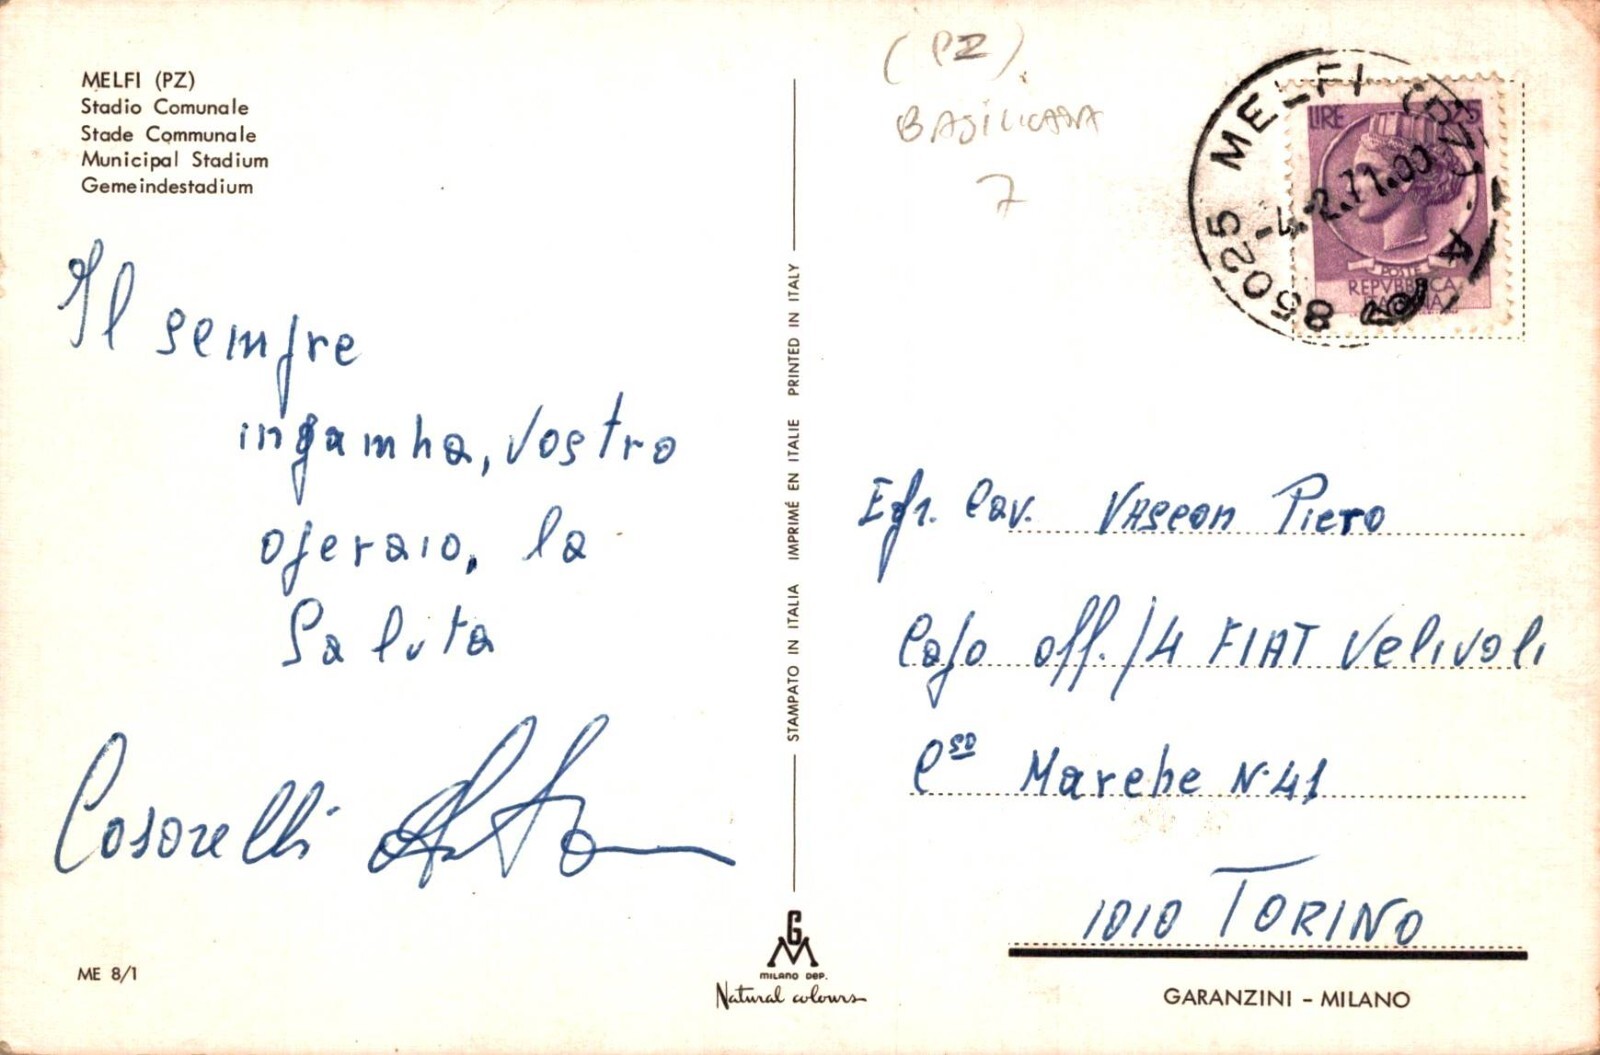 MELFI (PZ)
Stadio Comunale
Stade Communale
Municipal Stadium
Gemeindestadium
Il sempre
ingamba, vostro
operaio, la
Saluta
Cosorelli
ME 8/1
STAMPATO IN ITALIA IMPRIMÉ EN ITALIE PRINTED IN ITALY
GM
MILANO DEP.
Natural colours
(PZ)
BASILICATA
7
85025 MELFI (PZ) A
-4.-2.71.00
LIRE 25
POSTE
REPVBBLICA
ITALIANA
Egr. Cav. VASCON Piero
Capo off./4 FIAT Velivoli
Cso Marche N.41
1010 TORINO
GARANZINI - MILANO